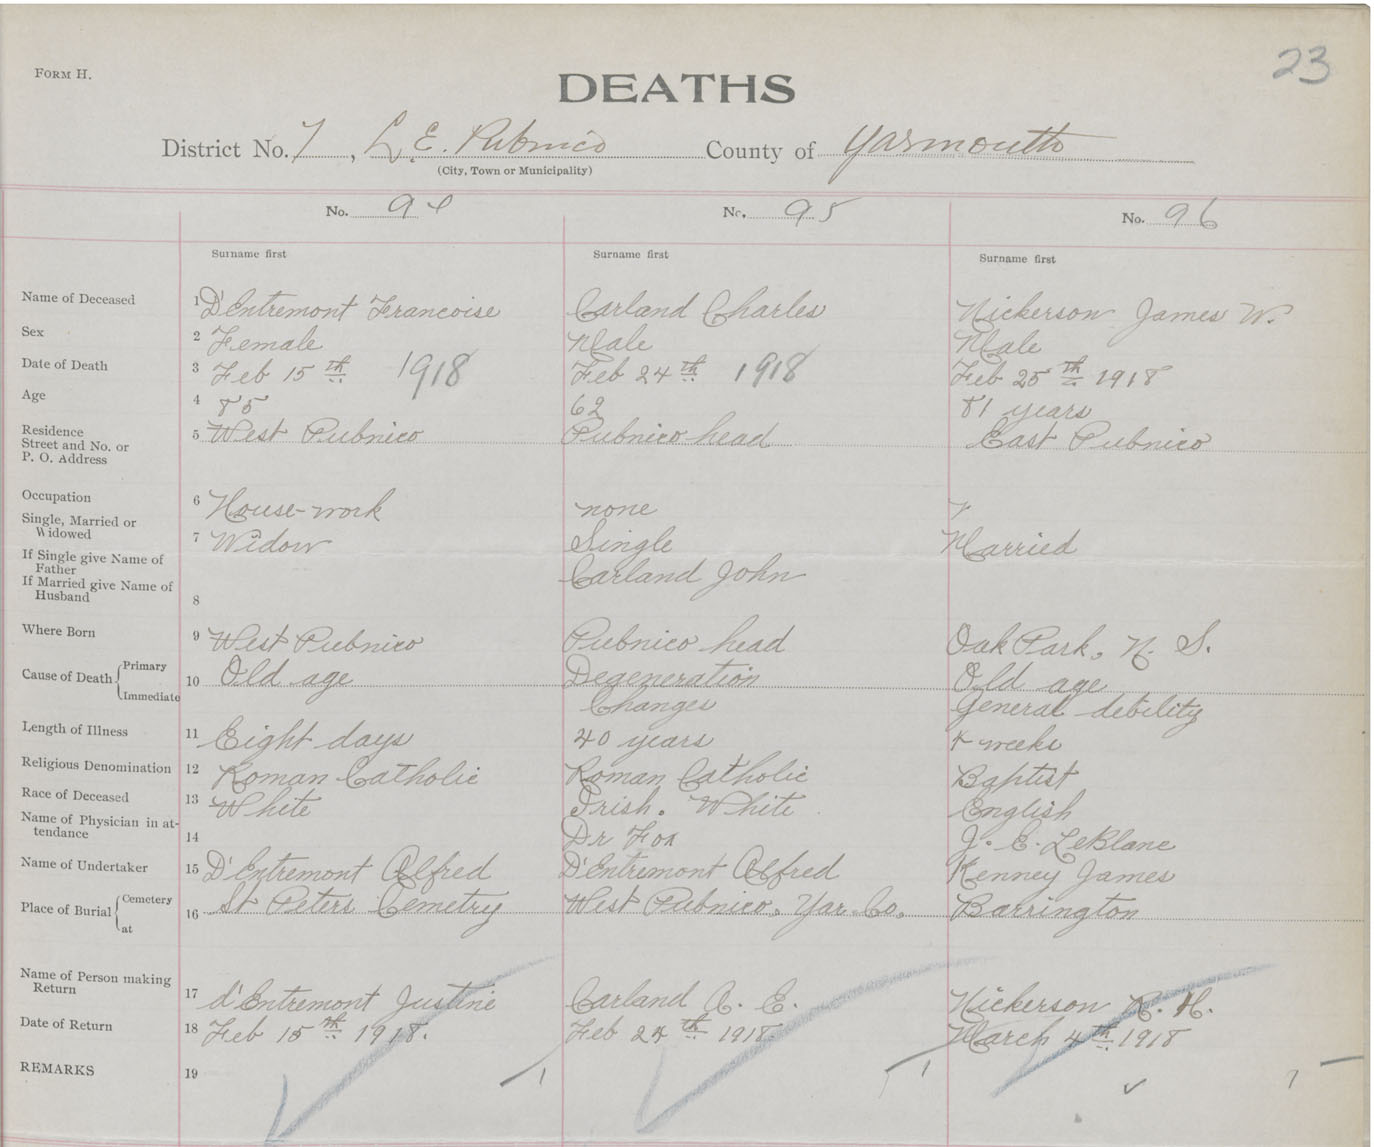 23
FORM H.
DEATHS
District No. 7, L. E. Pubnico County of Yarmouth
(City, Town or Municipality)
No. 94 No. 95 No. 96
Surname first Surname first Surname first
Name of Deceased 1 D'Entremont Francoise Carland Charles Nickerson James W.
Sex 2 Female Male Male
Date of Death 3 Feb 15th 1918 Feb 24th 1918 Feb 25th 1918
Age 4 85 62 81 years
Residence
Street and No. or
P. O. Address 5 West Pubnico Pubnico head East Pubnico
Occupation 6 House-work none
Single, Married or
Widowed 7 Widow Single Married
If Single give Name of
Father Carland John
If Married give Name of
Husband 8
Where Born 9 West Pubnico Pubnico head Oak Park, N. S.
Cause of Death Primary 10 Old age Degeneration Old age
Immediate Changes General debility
Length of Illness 11 Eight days 40 years 4 weeks
Religious Denomination 12 Roman Catholic Roman Catholic Baptist
Race of Deceased 13 White Irish. White English
Name of Physician in at-
tendance 14 Dr Fox J. E. LeBlanc
Name of Undertaker 15 D'Entremont Alfred D'Entremont Alfred Kenney James
Place of Burial Cemetery 16 St Peters Cemetry West Pubnico, Yar. Co. Barrington
at
Name of Person making
Return 17 d'Entremont Justine Carland A. E. Nickerson R. H.
Date of Return 18 Feb 15th 1918. Feb 24th 1918. March 4th 1918
REMARKS 19